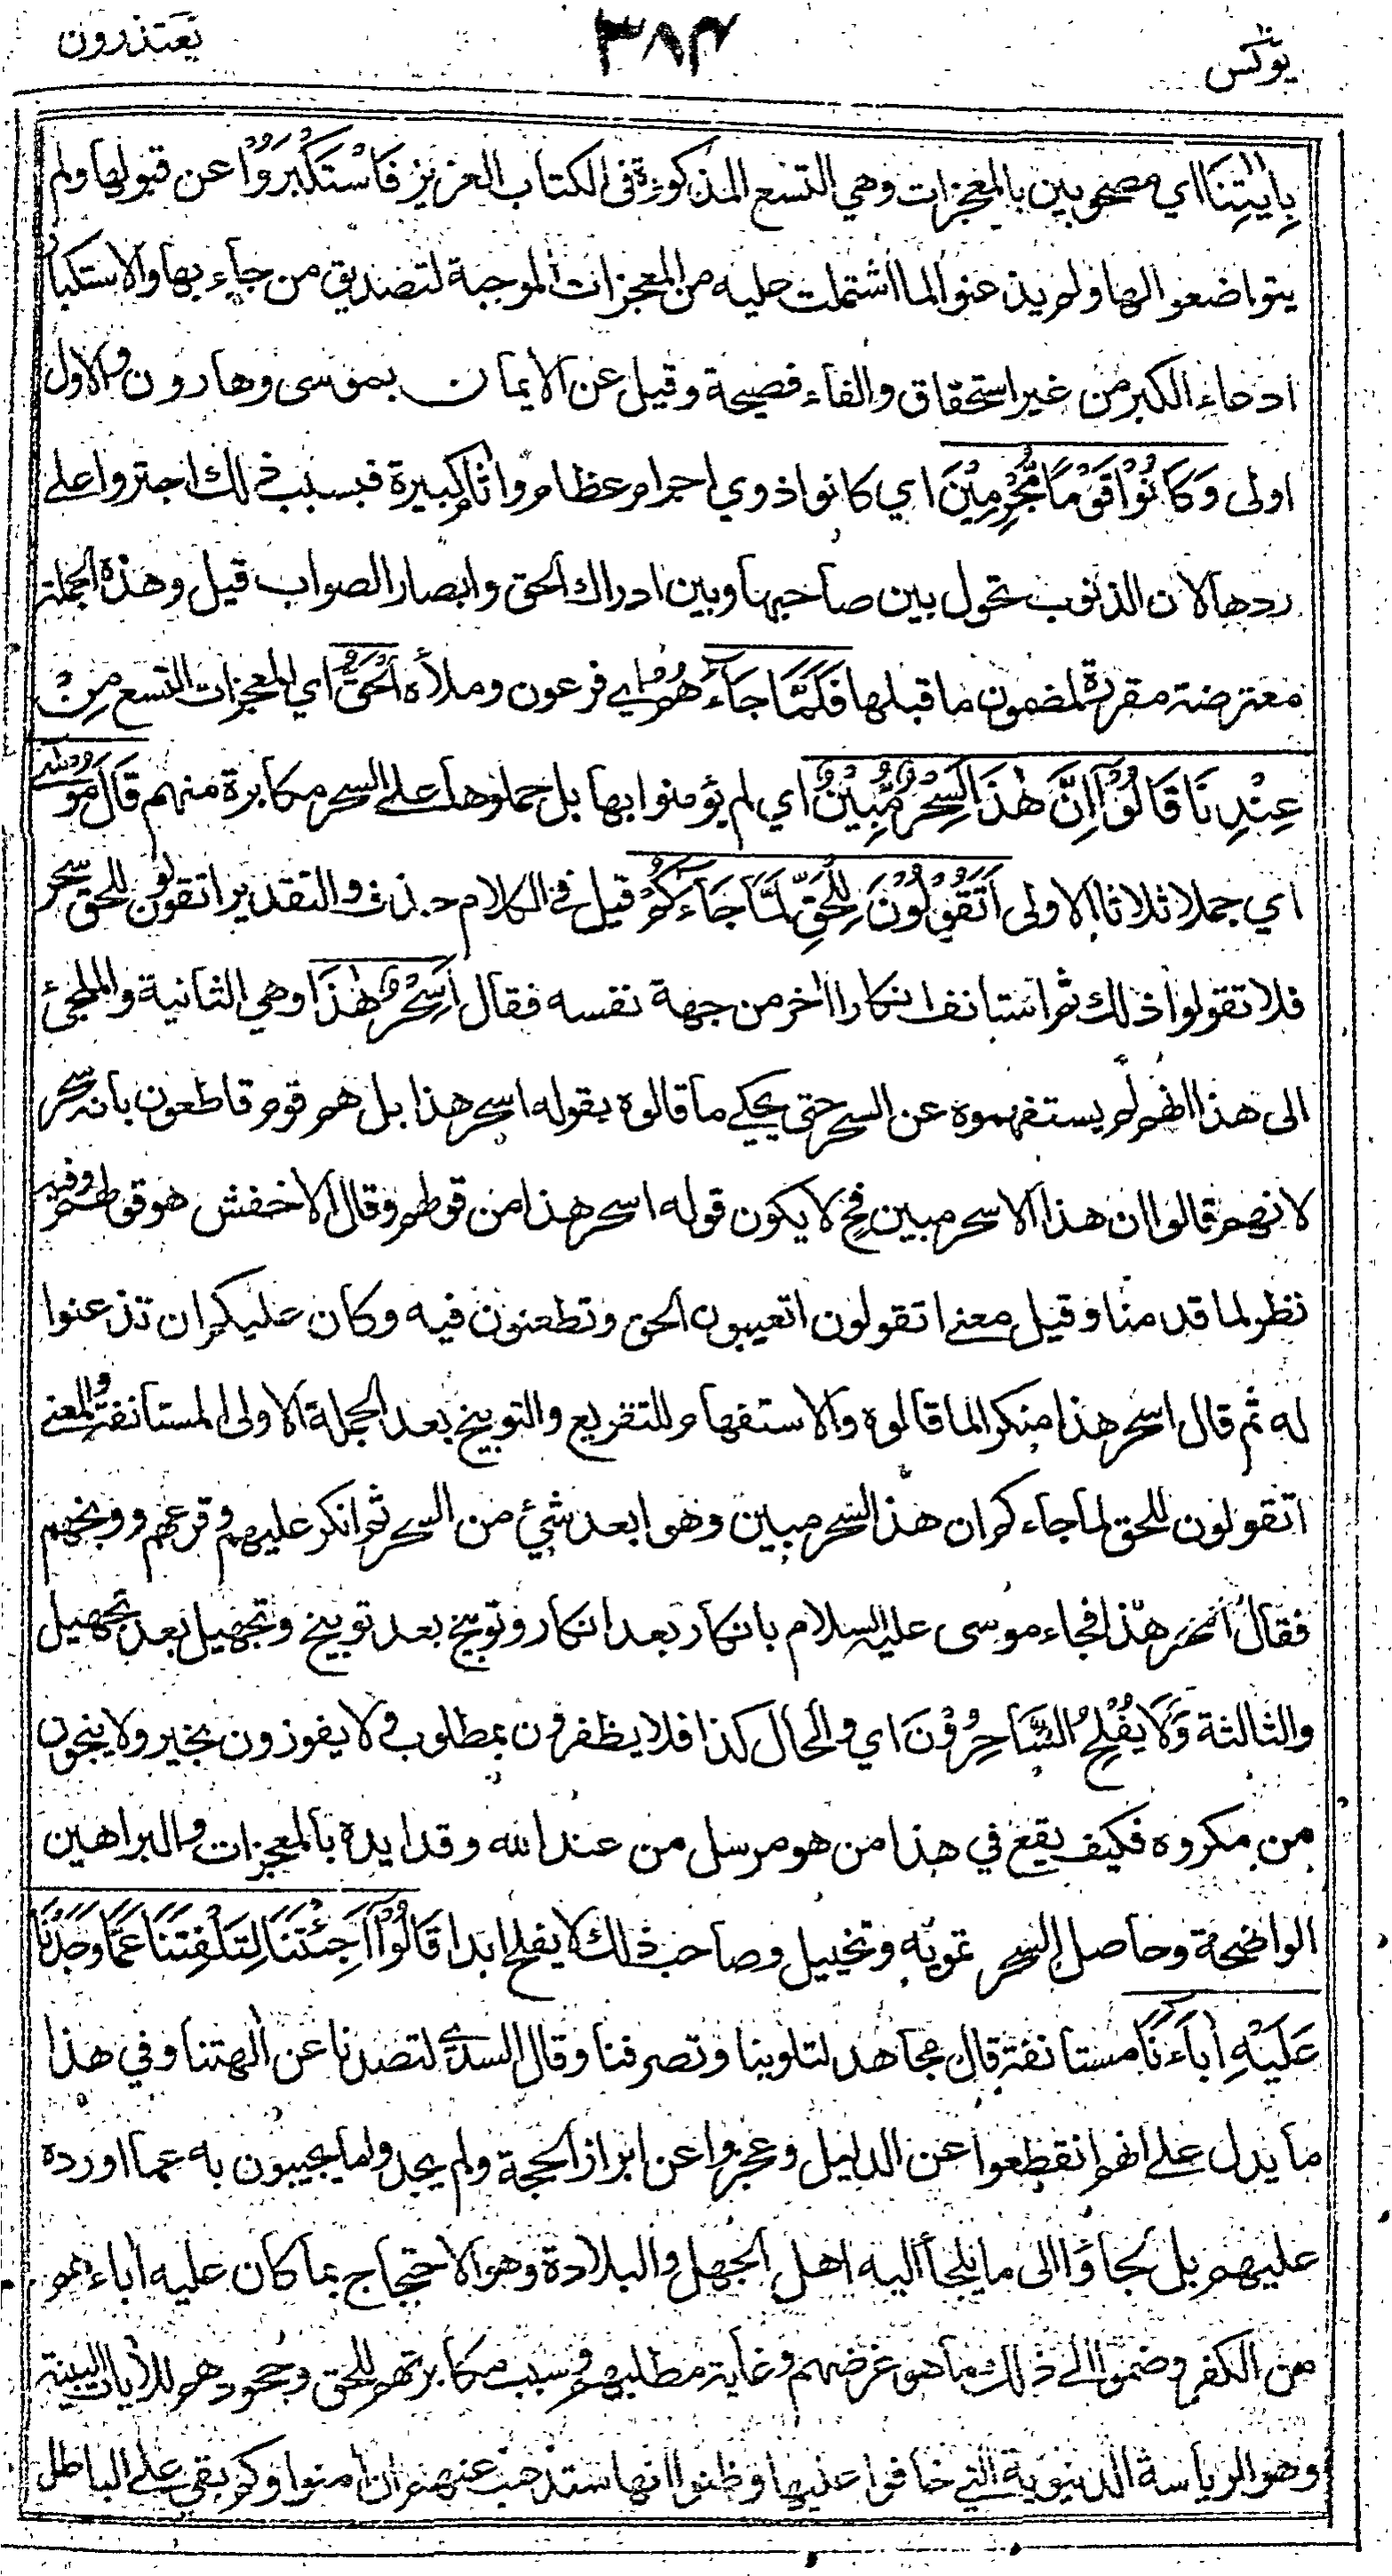 يعتذرون ٣٨٣ يونس
بِاٰيٰتِنَا اي مصحوبين بالمعجزات وهي التسع المذكورة فى الكتاب العزيز فَاسْتَكْبَرُوْا عن قبولها ولم
يتواضعوا لها ولم يذعنوا لما اشتملت عليه من المعجزات الموجبة لتصديق من جاء بها والاستكبار
ادعاء الكبر من غير استحقاق والفاء فصيحة وقيل عن الايمان بموسى وهارون والاول
اولى وَكَانُوْا قَوْمًا مُّجْرِمِيْنَ اي كانوا ذوي اجرام عظام واٰثام كبيرة فبسبب ذلك اجتروا على
ردها لان الذنوب تحول بين صاحبها وبين ادراك الحق وابصار الصواب قيل وهذه الجملة
معترضة مقررة لمضمون ما قبلها فَلَمَّا جَآءَهُمُ اي فرعون وملأه الْحَقُّ اي المعجزات التسع مِنْ
عِنْدِنَا قَالُوْٓا اِنَّ هٰذَا لَسِحْرٌ مُّبِيْنٌ اي لم يؤمنوا بها بل حملوها على السحر مكابرة منهم قَالَ مُوْسٰٓى
اي جملا ثلاثا الاولى اَتَقُوْلُوْنَ لِلْحَقِّ لَمَّا جَآءَكُمْ قيل فى الكلام حذف والتقدير اتقولون للحق سحر
فلا تقولوا ذلك ثم استانف انكارا اٰخر من جهة نفسه فقال اَسِحْرٌ هٰذَا وهي الثانية والملجئ
الى هذا انهم لم يستفهموه عن السحر حتى يحكي ما قالوه بقوله اسحر هذا بل هم قوم قاطعون بانه سحر
لانهم قالوا ان هذا الا سحر مبين فح لا يكون قوله اسحر هذا من قولهم وقال الاخفش هو قولهم وفيه
نظر لما قدمنا وقيل معنى اتقولون اتعيبون الحق وتطعنون فيه وكان عليكم ان تذعنوا
له ثم قال اسحر هذا منكرا لما قالوه والاستفهام للتقريع والتوبيخ بعد الجملة الاولى المستانفة والمعنى
اتقولون للحق لما جاءكم ان هذا لسحر مبين وهو ابعد شيئ من السحر ثم انكر عليهم وقرعهم ووبخهم
فقال اسحر هذا فجاء موسى عليه السلام بانكار بعد انكار وتوبيخ بعد توبيخ وتجهيل بعد تجهيل
والثالثة وَلَا يُفْلِحُ السَّاحِرُوْنَ اي والحال كذا فلا يظفرون بمطلوب و لا يفوزون بخير ولا ينجون
من مكروه فكيف يقع في هذا من هو مرسل من عند الله وقد ايده بالمعجزات والبراهين
الواضحة وحاصل السحر تمويه وتخييل وصاحب ذلك لا يفلح ابدا قَالُوْٓا اَجِئْتَنَا لِتَلْفِتَنَا عَمَّا وَجَدْنَا
عَلَيْهِ اٰبَآءَنَا مستانفة قال مجاهد لتلوينا وتصرفنا وقال السدى لتصدنا عن اٰلهتنا وفي هذا
ما يدل على انهم انقطعوا عن الدليل وعجزوا عن ابراز الحجة ولم يجدوا ما يجيبون به عما اورده
عليهم بل لجاوا الى ما يلجأ اليه اهل الجهل والبلادة وهو الاحتجاج بما كان عليه اٰباءهم
من الكفر وضموا الى ذلك ما هو غرضهم وغاية مطلبهم وسبب مكابرتهم للحق وجحودهم للاٰيات البينة
وهو الرياسة الدنيوية التي خافوا عليها وظنوا انها ستذهب عنهم ان اٰمنوا وكم بقي على الباطل